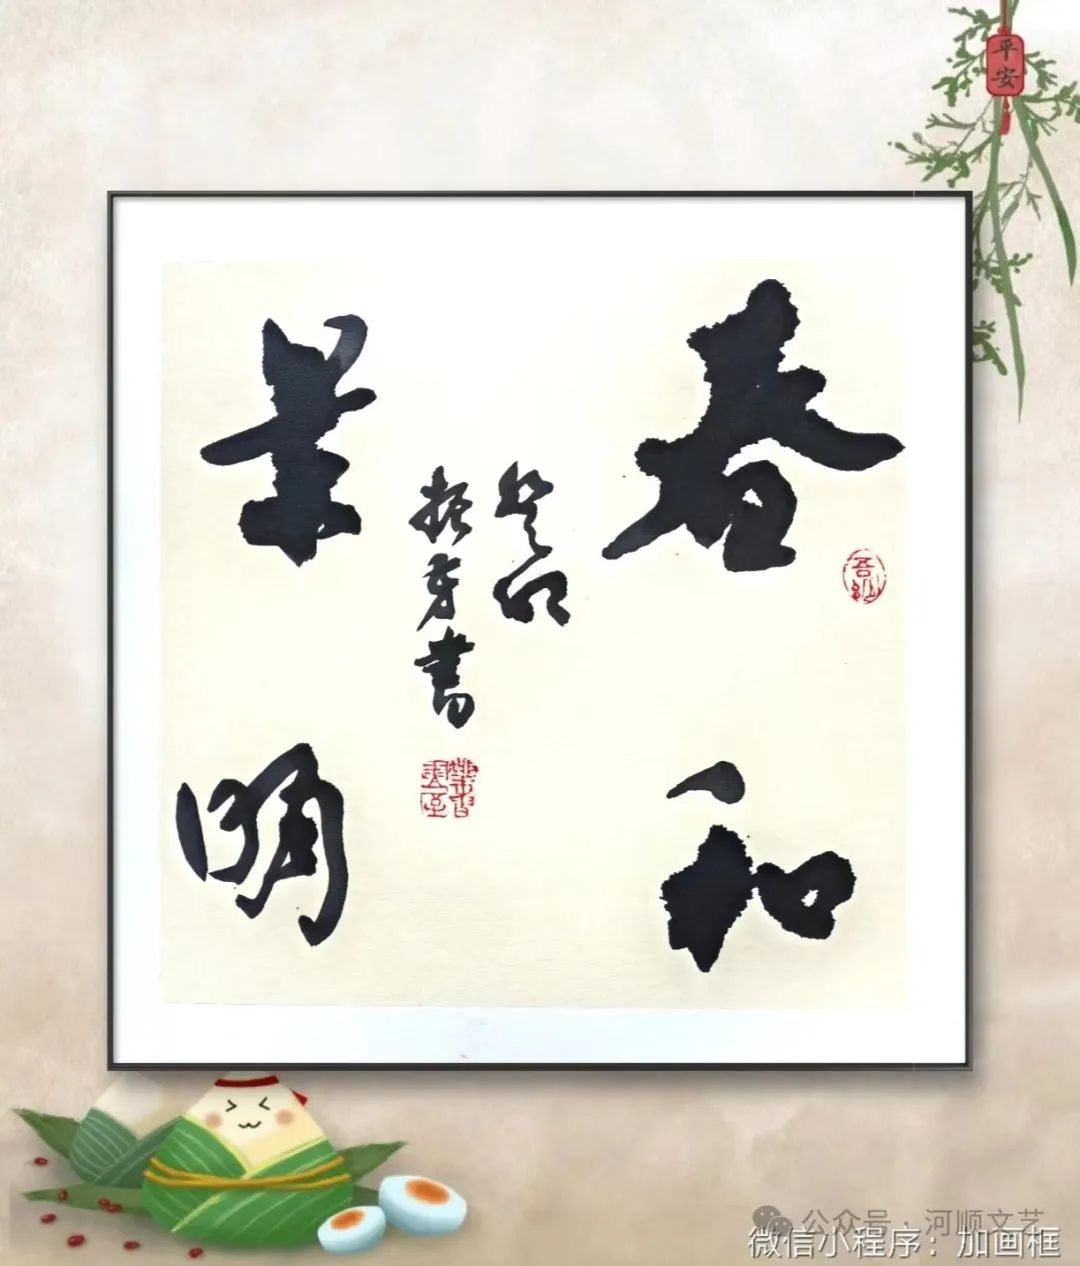 平安
春和
景明
癸卯
振身書
吾幼
公众号·河顺文艺
微信小程序：加画框